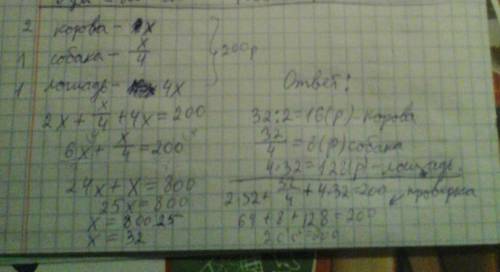 2 корова - x
1 собака - x/4
1 лошадь - 4x
200р
2x + x/4 + 4x = 200
6x + x/4 = 200
24x + x = 800
25x = 800
x = 800:25
x = 32
Ответ:
32:2=16(р)-корова
32/4 = 8(р)собака
4·32=128(р)-лошадь.
2·32 + 32/4 + 4·32=200
проверка
64+8+128=200
200=200